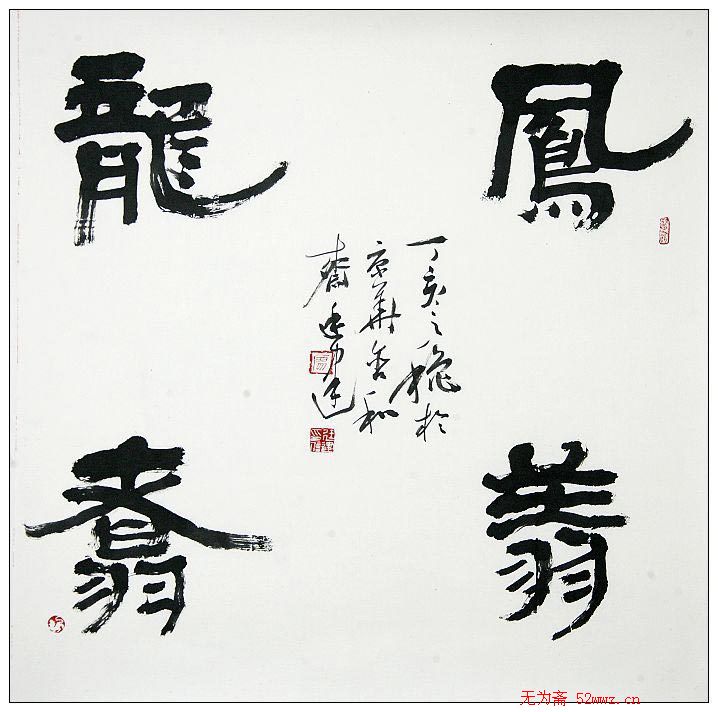 鳳翔
龍翥
丁亥之穐於
京華含和
齋
无为斋 52wwz.cn